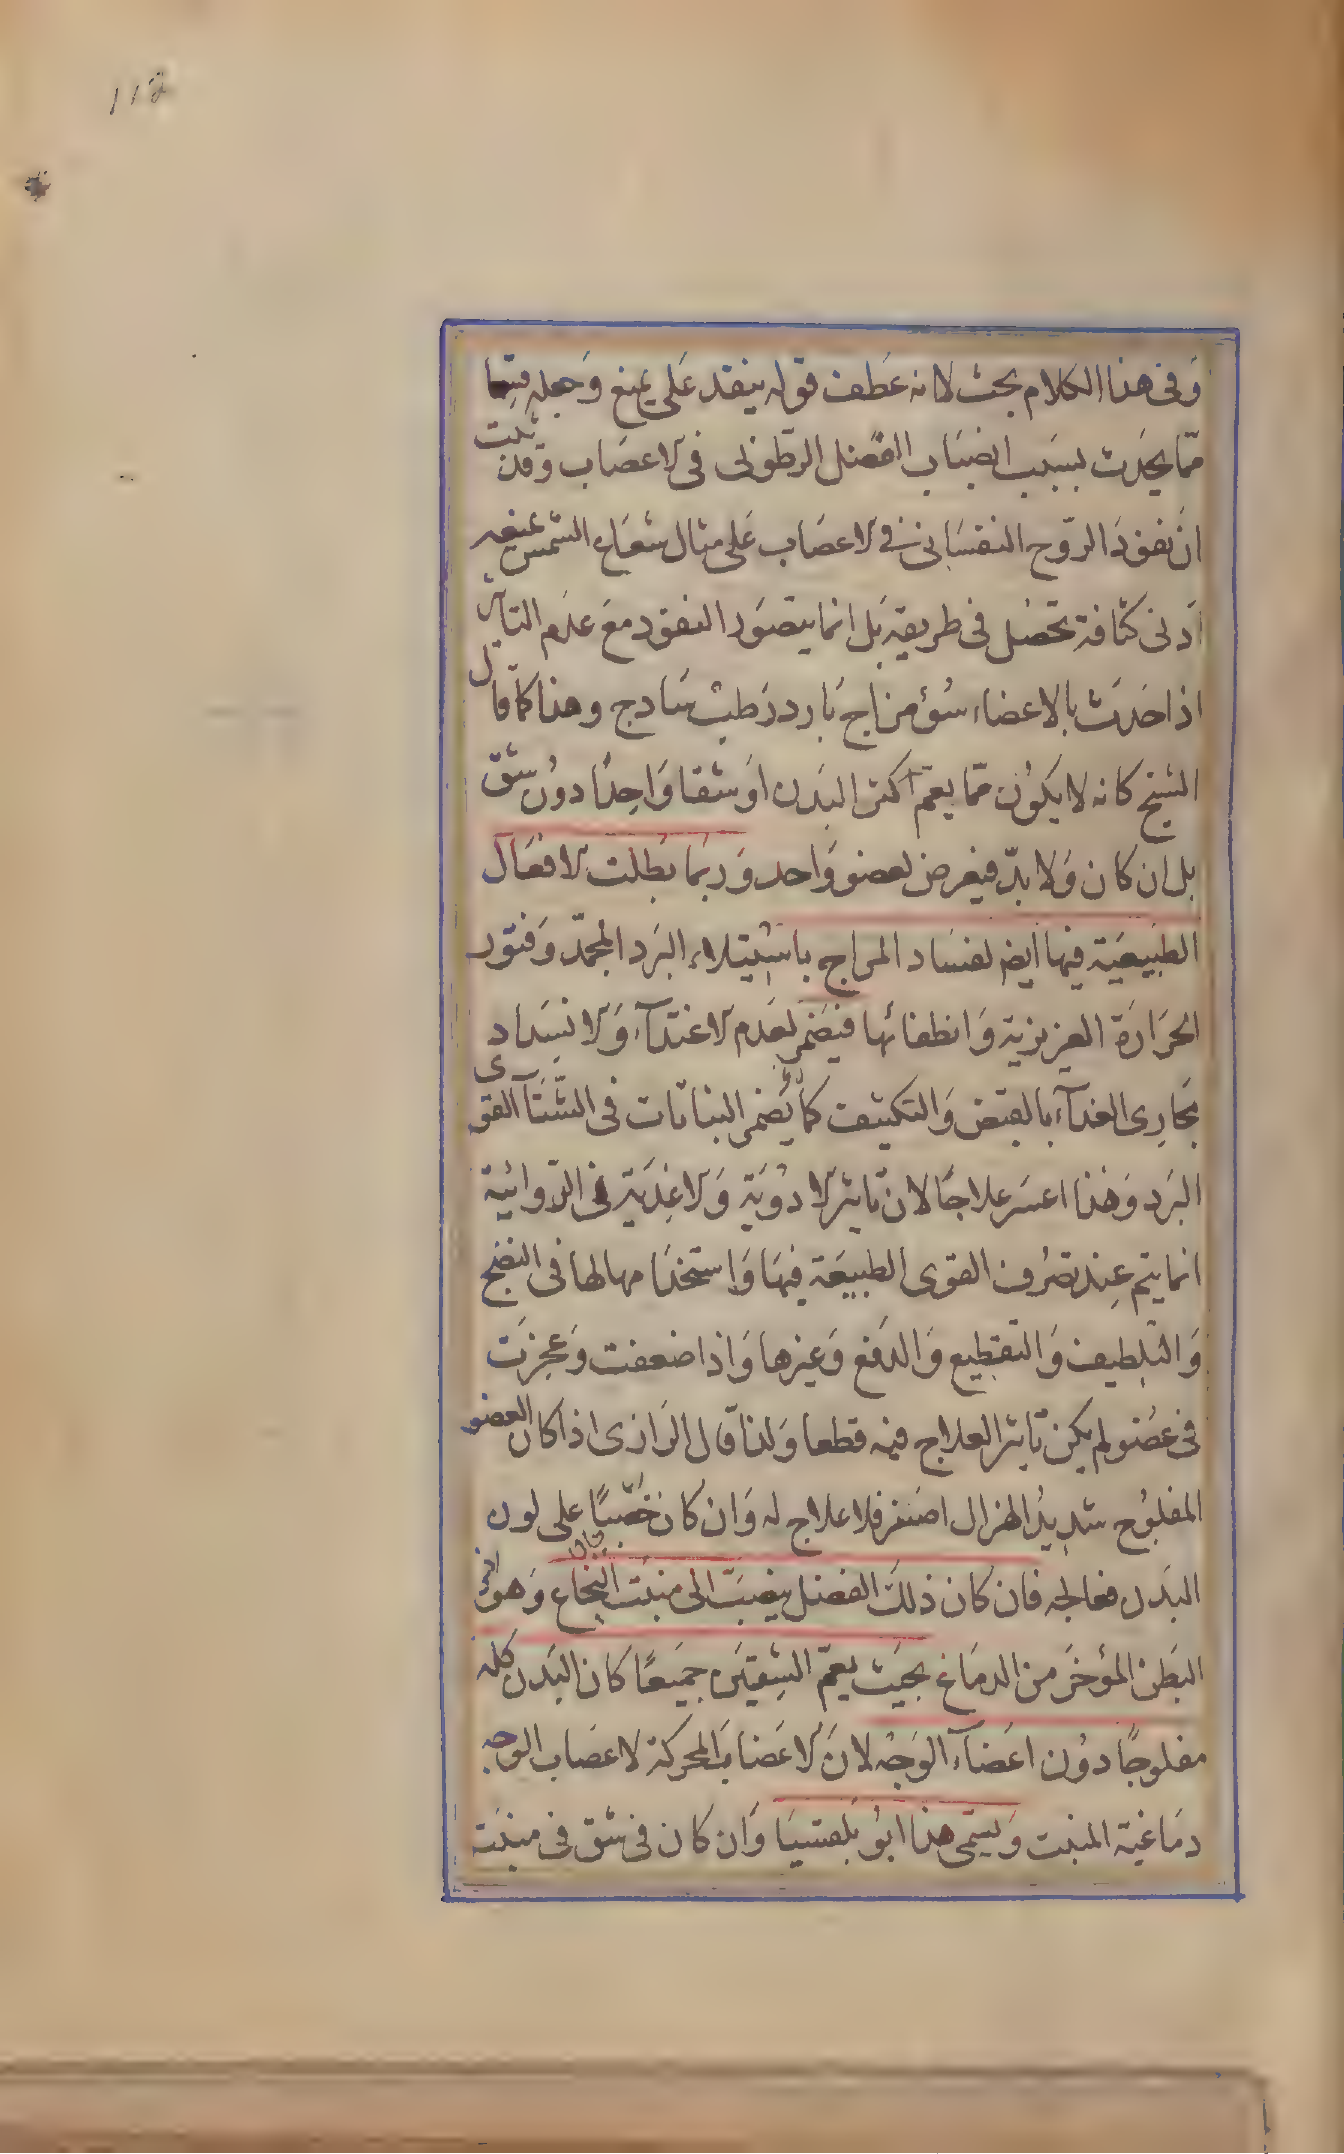 112
وَفى هذا الكلام بحث لانه عَطف قوله ينفذ عَلى يمنع وَجعله قسِمًا
ممّا يحدَث بسَبَب انصبَاب الفضل الرّطوبى فى الاعصَاب وقد ثبت
انّ نفوذ الرّوح النفسَانى فى الاعصَاب عَلى مثال شعَاع الشمس يمنعه
اَدنى كثافة تحصُل فى طريقه بَل انما يتصَور النفوذ معَ عدَم التأثير
اذا حَدَث بالاعضاء سُوء مزاج بَارد رَطب سَادج وهذا كما قال
الشيخ كانه لا يكوُن ممّا يعمّ اكثر البَدن اوَ شقا وَاحِدًا دوُن شق
بل ان كان وَلا بدّ فيعرض لعضو وَاحد وَربمَا بَطلت الافعَال
الطبَيعيَة فيها ايضا لفسَاد المزاج باستيلاء البَرد المجمّد وَفتور
الحَرَارَة الغريزية وَانطفائها فيَضمر لعَدم الاغتذآء وَالانسِداد
مجَارى الغذآء بالقبَض وَالتكثيف كما يَضمر النباتات فى الشّتَآ القوى
البَرد وَهذا اعسَر علاجَا لان تاثير الادوُيَة وَالاغذيَة فى الدوائية
انما يتم عِند تصَرُف القوى الطبيعَة فيهَا وَاستخدَامها لها فى النضج
وَالتلطيف وَالتقطيع وَالدَفع وَغيرها وَاذا ضعفت وَعجزَت
فى عضُو لم يكن تاثير العلاج فيه قطعا وَلذا قال الرَازى اذا كان العضو
المفلوُج شديُد الهزال اصفر فلا علاج له وَان كان خصَبًا على لون
البَدن فعالجه فان كان ذلكَ الفضل ينصَبّ الى منبَت النخاع وَهو
البَطن المؤخَر من الدمَاغ بحَيث يعمّ الشِقيَن جميَعًا كان البَدن كله
مفلوجًا دوُن اعضَآء الوَجُه لانَ الاعصَاب المحركة لاعصَاب الوجه
دمَاغية المنبت وَيسَمى هذا ابوُ بَلقسيَا وَان كان فى شق فى منبَت